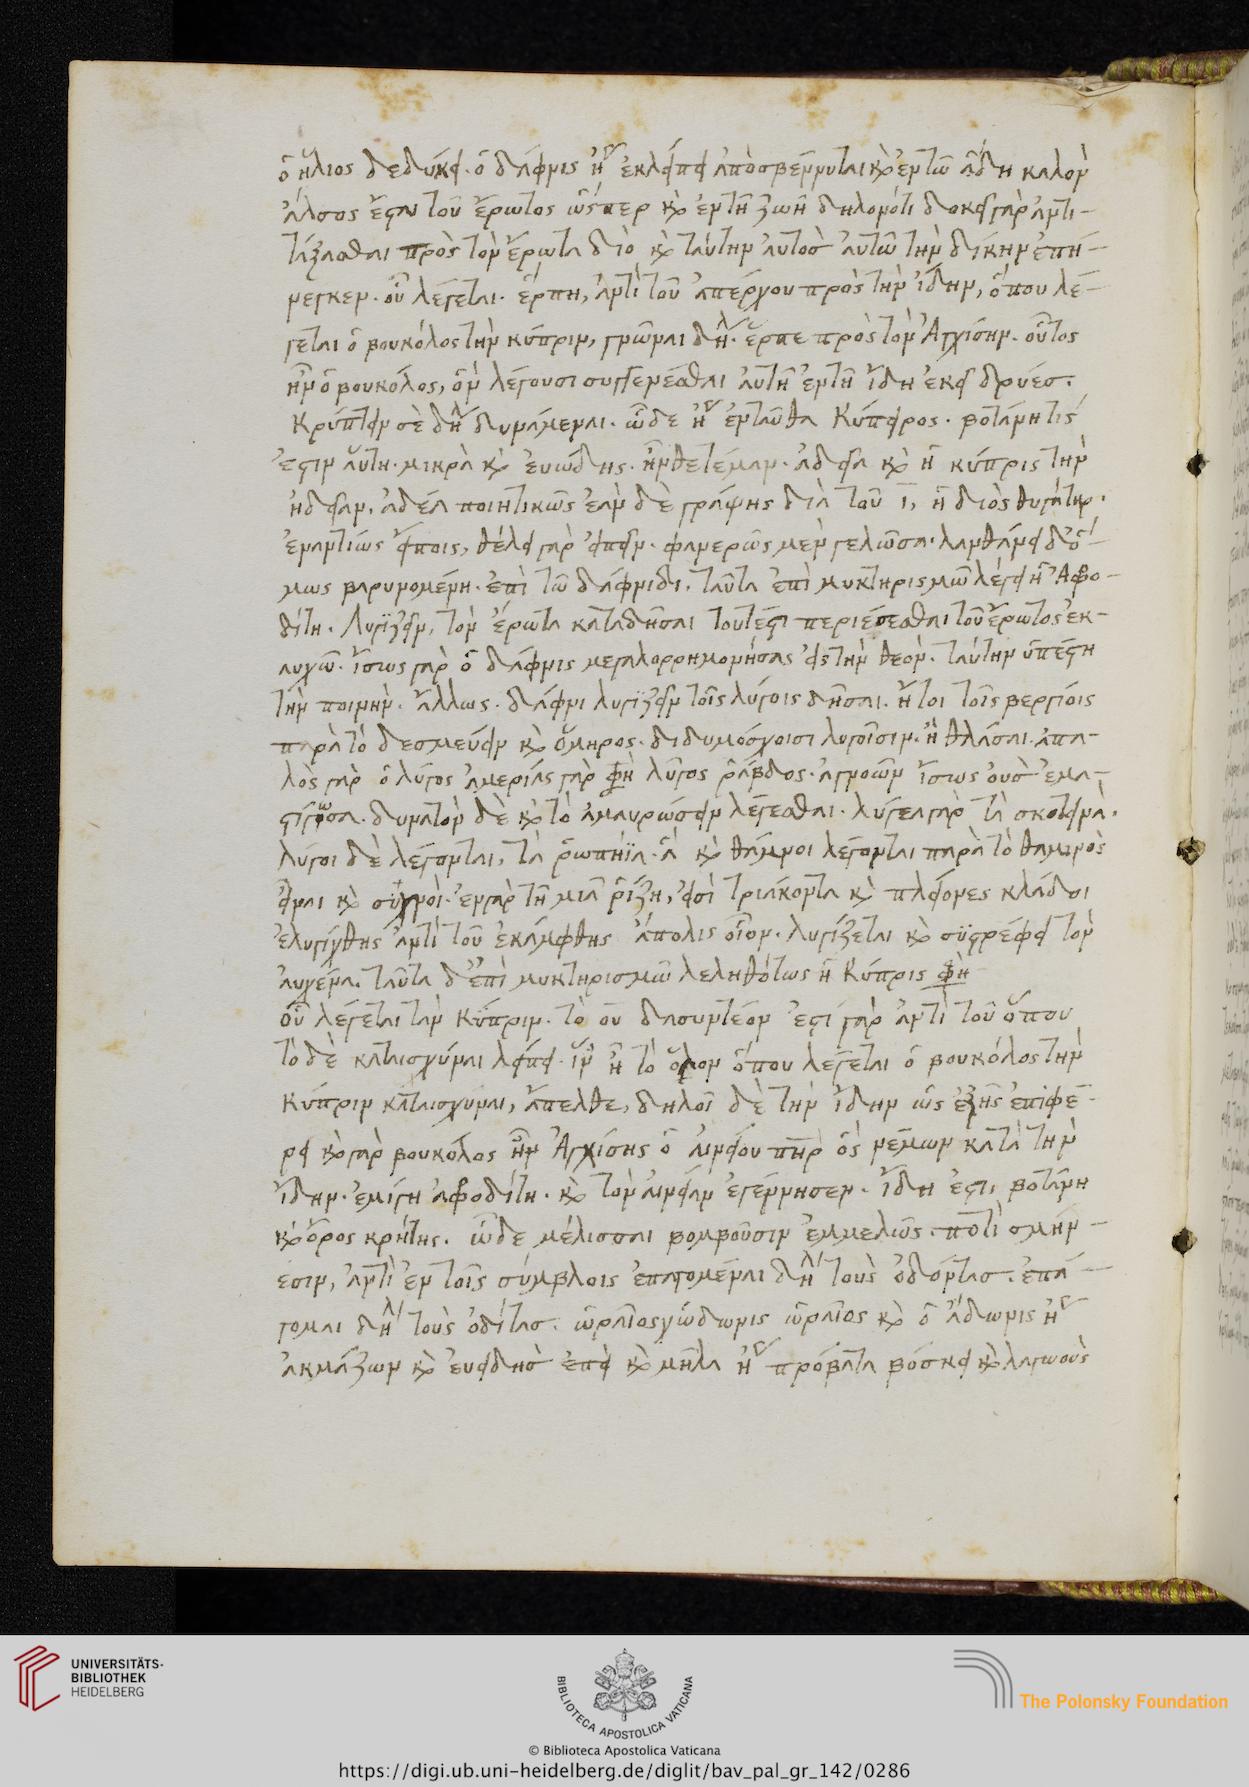 ὁ ἥλιος δεδύκει. ὁ δάφνις ἢ ἐκλείπει ἀποσβέννυται κὶ ἐν τῶ ἅδη καλὸν
ἄλσος ἔσται τοῦ ἔρωτος ὥσπερ κὶ ἐν τῆ ζωῆ δηλονότι δοκεῖ γὰρ ἀντι-
τάξασθαι πρὸς τὸν ἔρωτα διὸ κὶ ταύτην αὐτὸσ αὐτῶ τὴν δίκην ἐπή-
νεγκεν. οὗ λέγεται. ἕρπη, ἀντὶ τοῦ ἀπέρχου πρὸς τὴν ἴδην, ὅπου λέ-
γεται ὁ βουκόλος τὴν κύπριν, γνῶναι δη. ἕρπε πρὸς τὸν Ἀγχίσην. οὗτος
ἦν ὁ βουκόλος, ὃν λέγουσι συγγενέσθαι αὐτῆ ἐν τῆ ἴδη ἐκεῖ δρύεσ.
Κρύπτειν σὲ δη δυνάμεναι. ὧδε ἢ ἐνταῦθα Κύπειρος. βοτάνη τίς
ἐστιν αὕτη. μικρὰ κὶ εὐώδης. ἣνθετέμαν. ἁδεῖα κὶ ἡ κύπρις τὴν
ἡδεῖαν. ἁδέα ποιητικῶς ἐὰν δὲ γράψης διὰ τοῦ ῑ, ἡ διὸς θυγάτηρ.
ἐναντίως εἴποις, θέλει γὰρ εἰπεῖν. φανερῶς μὲν γελῶσα. λανθάνει δὲ ὅ-
μως βαρυνομένη. ἐπὶ τῶ δάφνιδι. ταῦτα ἐπὶ μυκτηρισμῶ λέγει ἡ Ἀφο-
δίτη. Λυγιζεῖν, τὸν ἔρωτα καταδῆσαι τουτέστι περιέσεσθαι τοῦ ἔρωτος ἐκ-
αυχῶ. ἴσως γὰρ ὁ δάφνις μεγαλορρημονήσας εἰς τὴν θεὸν. ταύτην ὑπέστη
τὴν ποινὴν. ἄλλως. δάφνι λυγιζεῖν τοῖς λύγοις δῆσαι. ἤτοι τοῖς βεργίοις
παρὰ τὸ δεσμεύειν κὶ ὅμηρος. διδυμόσχοισι λυγοῖσιν. ἢ θλάσαι. ἁπα-
λὸς γὰρ ὁ λύγος ἀμερίας γὰρ φη λῦγος ῥάβδος. ἀγνοῶν ἴσως οὐσ ἐμα-
στίγωσα. δυνατὸν δὲ κὶ τὸ ἀμαυρώσειν λέγεσθαι. λύγεα γὰρ τὰ σκοτεινὰ.
λύγοι δὲ λέγονται, τὰ ῥωπήϊα. ἃ κὶ θάμνοι λέγονται παρὰ τὸ θαμινοὺς
εἶναι κὶ συχνοὶ. ἐν γὰρ τῆ μιᾶ ῥίζη, εἰσὶ τριάκοντα κὶ πλείονες κλάδοι
ἐλυγίχθης ἀντὶ τοῦ ἐκάμφθης ἄπολις οἷον. λυγίζεται κὶ συστρέφει τὸν
αὐχένα. ταῦτα δ' ἐπὶ μυκτηρισμῶ λεληθότως ἡ Κύπρις φη
οὗ λέγεται τὰν Κύπριν. τὸ ου δασυντέον ἐστὶ γὰρ ἀντὶ τοῦ ὅπου
τὸ δὲ καταισχύναι λείπει. ἵν ἦ τὸ ὅλον ὅπου λέγεται ὁ βουκόλος τὴν
Κύπριν καταισχυναι, ἄπελθε, δηλοῖ δὲ τὴν ἴδην ὡς ἑξῆς ἐπιφέ-
ρει κὶ γὰρ βουκόλος ἦν Ἀγχίσης ὁ αἰνείου πηρ ὃς νέμων κατὰ τὴν
ἴδην. ἐμίγη ἀφοδίτη. κὶ τὸν αἰνείαν ἐγέννησεν. ἴδη ἐστι βοτάνη
κὶ ὄρος κρήτης. ὧδε μέλισσαι βομβοῦσιν ἐμμελῶς. ποτὶ σμήν-
εσιν, ἀντὶ ἐν τοῖς σύμβλοις ἐπαγομέναι δη τοὺς ὀδόντασ. ἐπά-
γομαι δη τοὺς ὁδίτασ. ὡραῖος χὥδωνις ὡραῖος κὶ ὁ ἄδωνις ἢ
ἀκμάζων κὶ εὐειδησ ἐπεὶ κὶ μῆλα ἢ πρόβατα βόσκει κὶ λαγωοὺς
UNIVERSITÄTS-
BIBLIOTHEK
HEIDELBERG
BIBLIOTECA APOSTOLICA VATICANA
The Polonsky Foundation
© Biblioteca Apostolica Vaticana
https://digi.ub.uni-heidelberg.de/diglit/bav_pal_gr_142/0286